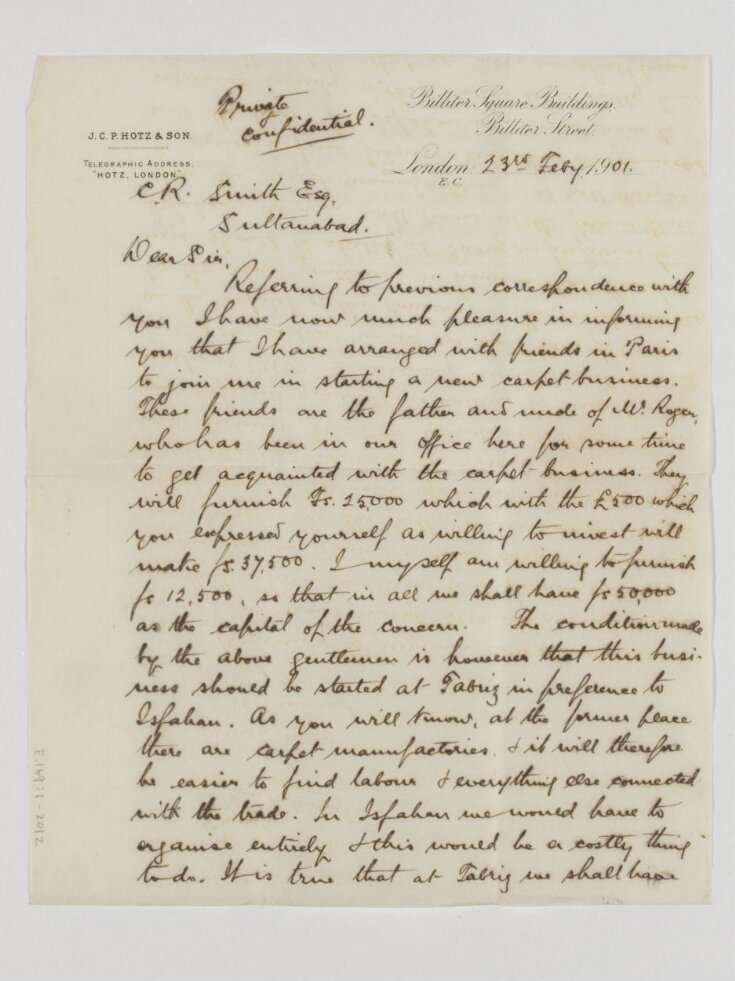 Private
Confidential.
J. C. P. HOTZ & SON.
TELEGRAPHIC ADDRESS.
"HOTZ, LONDON"
Billiter Square Buildings,
Billiter Street.
London, 23rd Feby 1901.
E.C.
C. R. Smith Esq.
Sultanabad.
Dear Sir,
Referring to previous correspondence with
you I have now much pleasure in informing
you that I have arranged with friends in Paris
to join me in starting a new carpet business.
These friends are the father and uncle of Mr. Roger,
who has been in our office here for some time
to get acquainted with the carpet business. They
will furnish Fs. 25,000 which with the £500 which
you expressed yourself as willing to invest will
make fs. 37,500. I myself am willing to furnish
fs 12,500, so that in all we shall have fs 50,000
as the capital of the concern. The condition made
by the above gentlemen is however that this busi-
ness should be started at Tabriz in preference to
Isfahan. As you will know, at the former place
there are carpet manufactories, & it will therefore
be easier to find labour & everything else connected
with the trade. In Isfahan we would have to
organise entirely & this would be a costly thing
to do. It is true that at Tabriz we shall have
E.169:1-2012